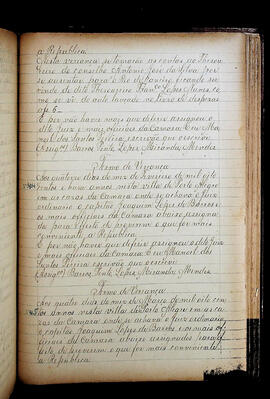 a Republica
Nesta veriança se tomarão as contas ao Thisou
reiro do conselho Antonio José da Silva por
se ausentar para o Rio de Janeiro ficando ser
vindo de dito Thesoureiro Franco Lopes Nunes, co
mo se vê do auto lavrado no livro de despezas
a fs 6—
E por não haver mais que deferir assignou o
dito juiz e mais officiaes da Camara e eu Ma
noel dos Santos Pereira escrivão que escrevi
(Assignos) Barros, Pinto, Lopes, Miranda, Mendes
Termo de Veriança
Aos quatorze dias do mez de Fevereiro de mil oito
centos e annos nesta villa de Porto Alegre
em as casas da Camara onde se achava o juiz
ordinario o capitão Joaquim Lopes de Barros e
os mais officiaes da Camara abaixo assigna
dos para effeito de proverem o que for mais
conveniente a Republica
E por não haver que deferir assignou o dito juiz
e mais officiaes da Camara E eu Manoel dos
Santos Pereira escrivão que escrevi
(Assignos) Barros, Pinto, Lopes, Miranda, Mendes
Termo de Veriança
Aos quatro dias do mez de Março de mil oito cen
tos annos nesta villa de Porto Alegre em as ca
sas da Camara onde se achava o juiz ordinario
o capitão Joaquim Lopes de Barros e os mais of
ficiaes da Camara abaixo assignados para ef
feito de proverem o que for mais conveniente
a Republica